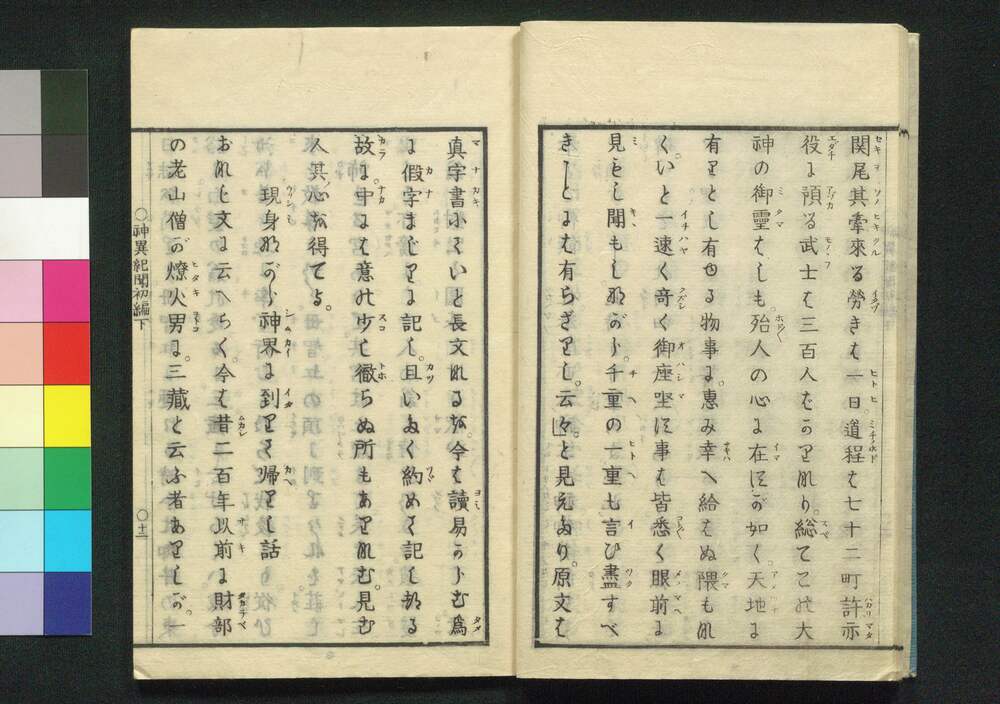 関尾其牽來る勞きは一日道程は七十二町許亦
役に預る武士は三百人なかりけり。総てこの大
神の御靈はしも。殆人の心に在すが如く。天地に
有りとし有ゆる物事に。惠み幸へ給はぬ隈もな
くいと一速く奇く御座坐す事は皆悉く眼前に
見もし聞もしながら。千重の一重も言ひ盡すべ
きことには有らざりし。云々。と見えたり。原文は
真字書にていと長文なるを。今は讀易からむ爲
に假字まじりに記し。且いたく約めて記しゝる
故。中には意の少し徹らぬ所もありなむ。見む
人其心を得てよ。
現身ながら神界に到りて帰りし話
おなじ文に云へらく。今は昔二百年以前に財部
の老山僧が燎火男に。三藏と云ふ者ありしが。一
神異紀聞初編下
○十三